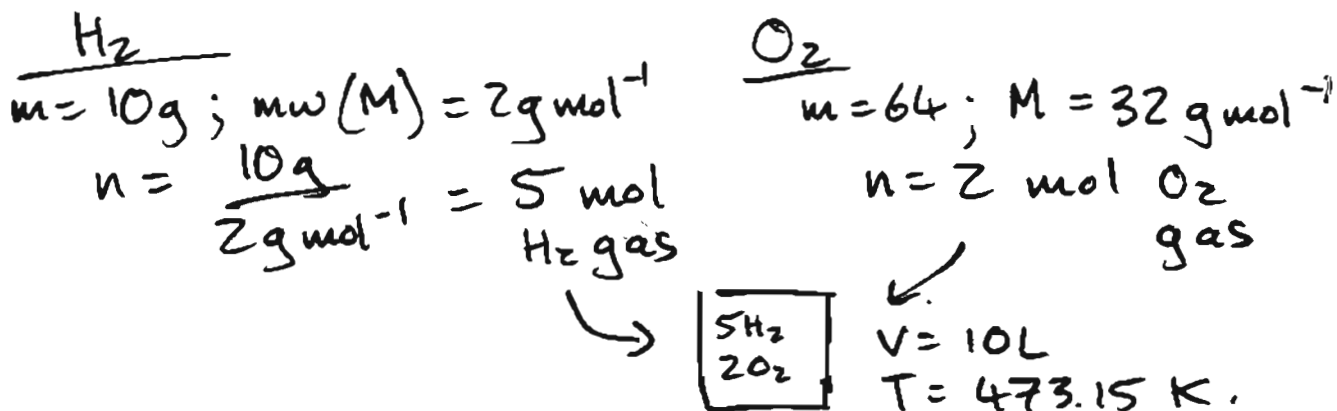 H₂
m = 10g ; mw (M) = 2 g mol⁻¹
n = 10g / 2 g mol⁻¹ = 5 mol
H₂ gas
O₂
m = 64 ; M = 32 g mol⁻¹
n = 2 mol O₂
gas
5H₂
2O₂
V = 10L
T = 473.15 K.